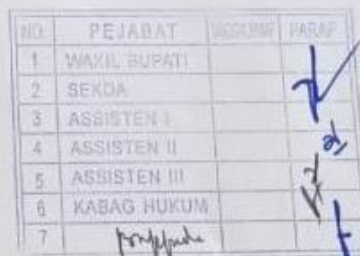 NO. PEJABAT TANGGAL PARAF
1 WAKIL BUPATI
2 SEKDA
3 ASSISTEN I
4 ASSISTEN II
5 ASSISTEN III
6 KABAG HUKUM
7